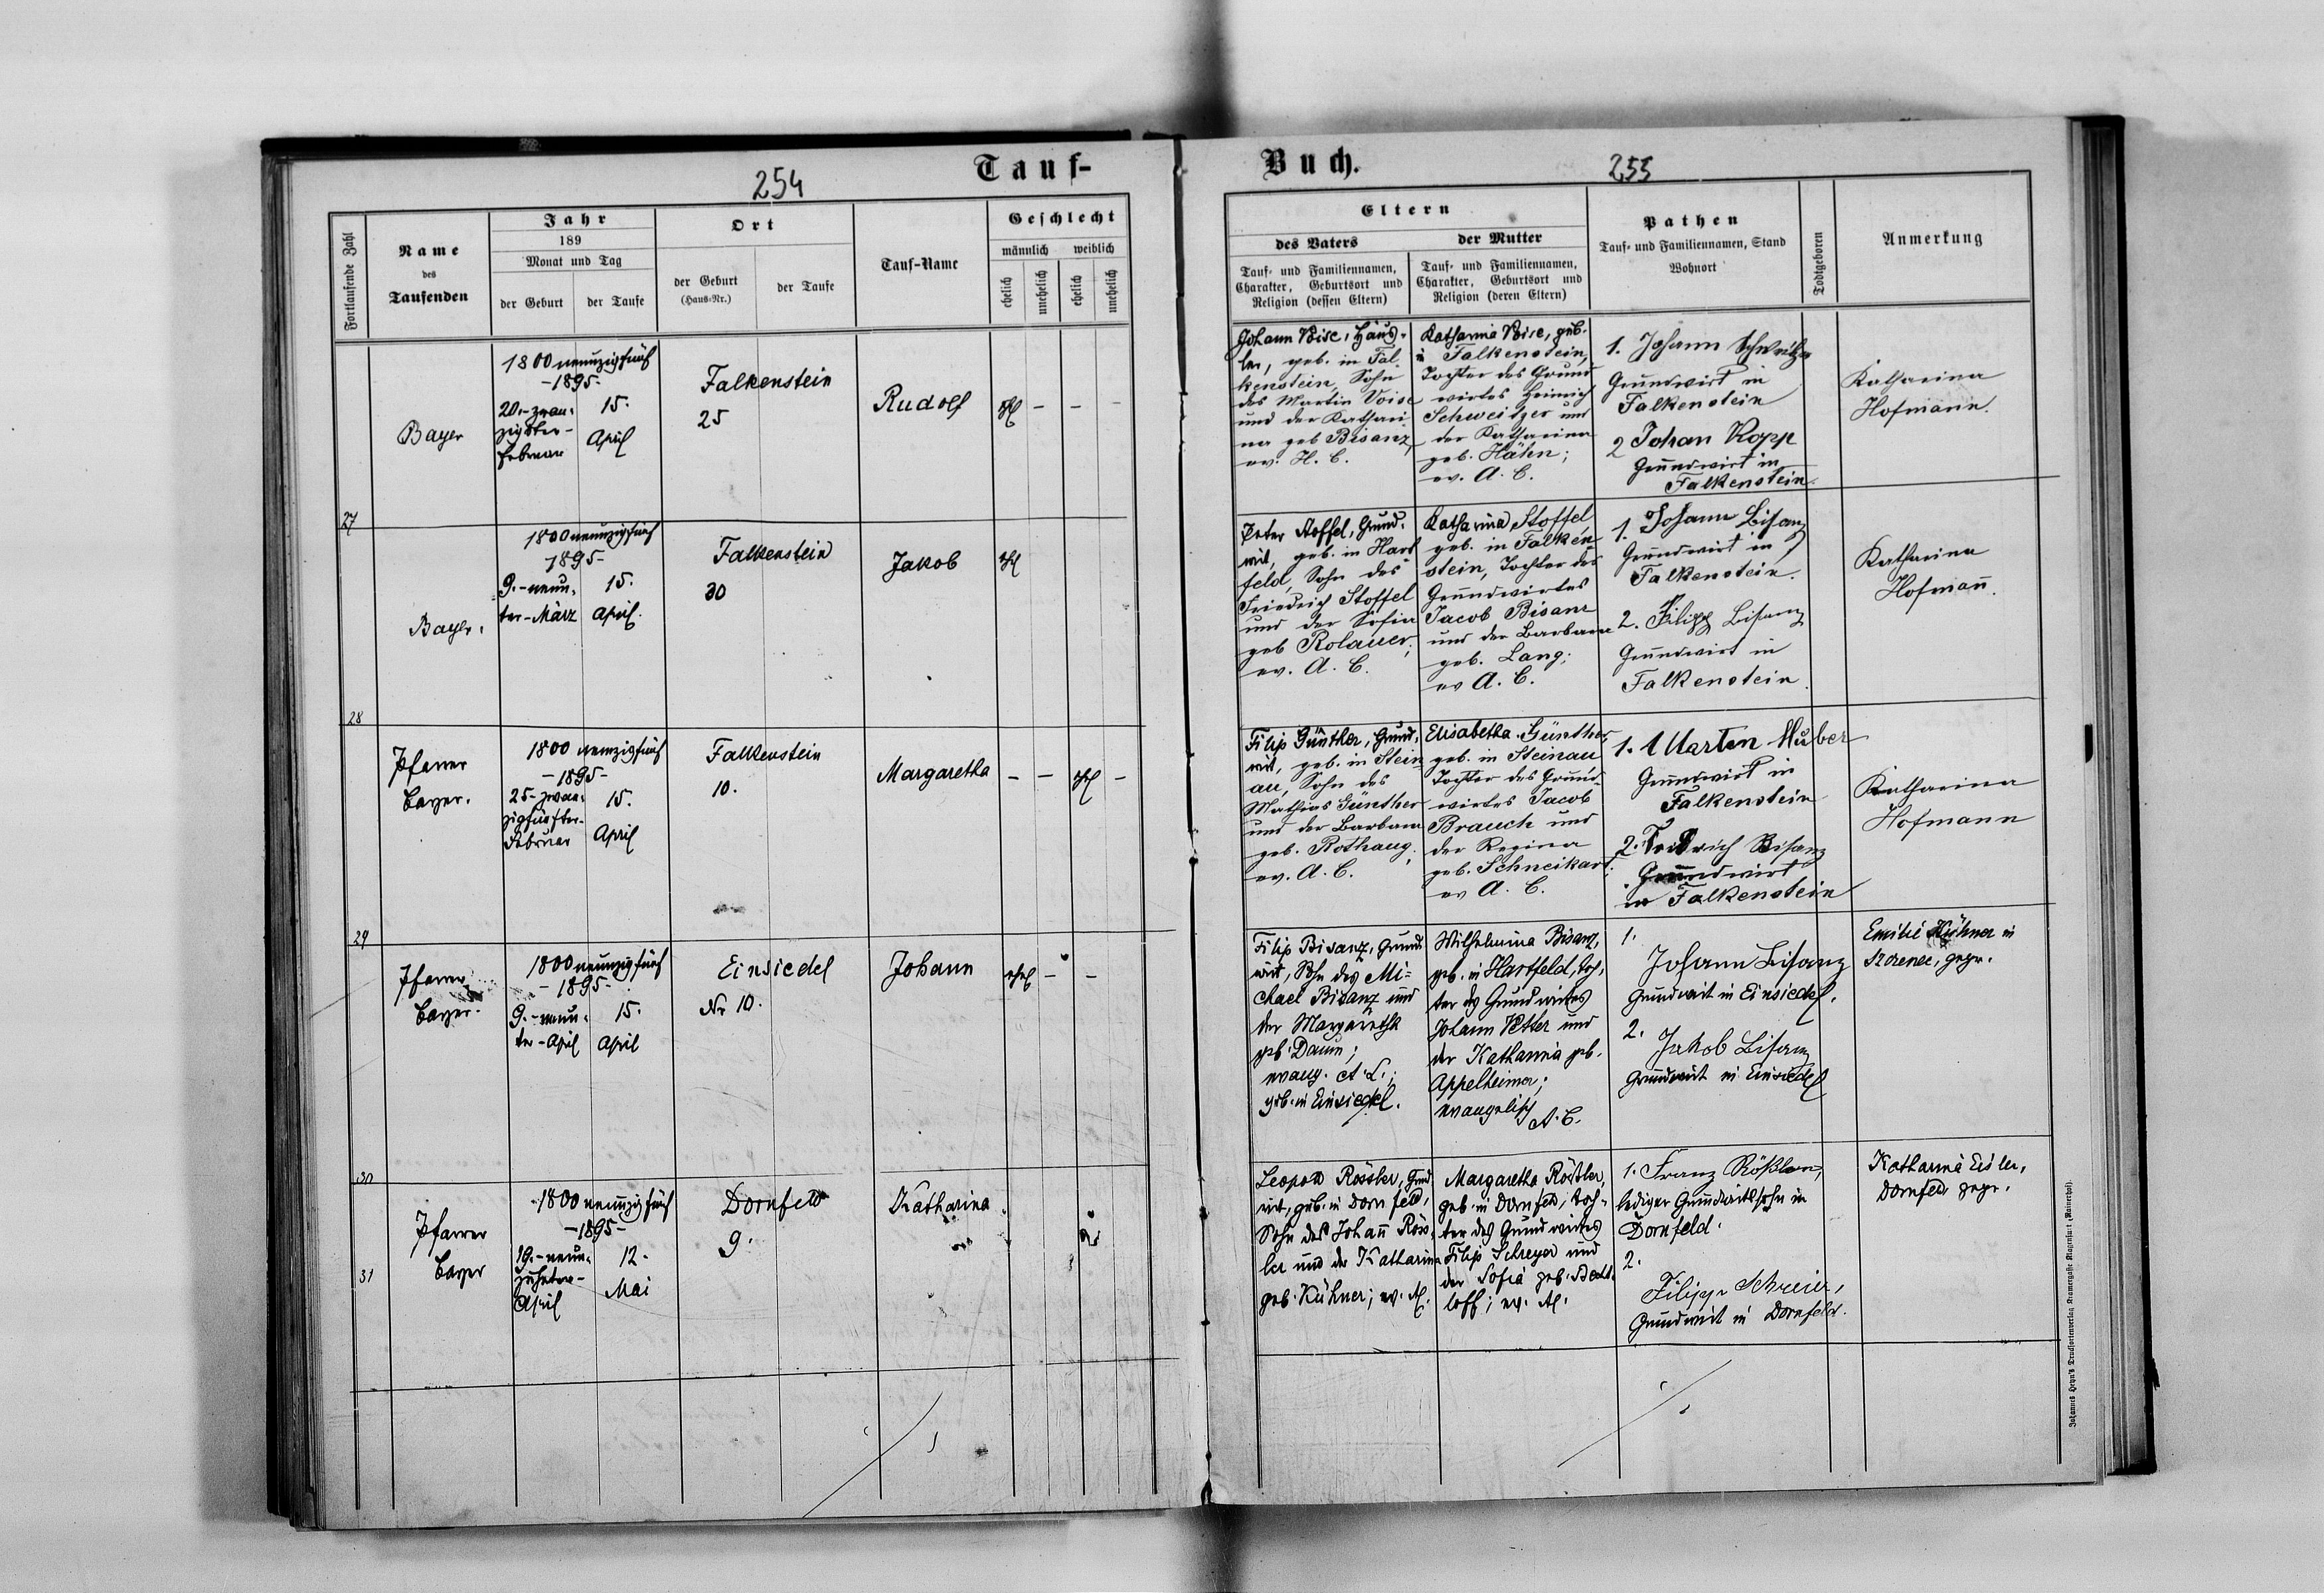 254
Tauf-
Fortlaufende Zahl
Name
des
Taufenden
Jahr
189
Monat und Tag
der Geburt
der Taufe
Ort
der Geburt
(Haus-Nr.)
der Taufe
Tauf-Name
Geschlecht
männlich
weiblich
ehelich
unehelich
ehelich
unehelich
27
Bayer
1800 neunzigfünf
-1895-
20.-zwan-
zigster-
Februar
15.
April
Falkenstein
25
Rudolf
ehl
-
-
-
28
Bayer.
1800 neunzigfünf
1895-
9.-neun-
ter-März
15.
April.
Falkenstein
30
Jakob
ehl
29
Pfarrer
Bayer.
1800 neunzigfünf
-1895-
25-zwan-
zigfünfter-
Februar
15.
April
Falkenstein
10.
Margaretha
-
-
ehl
-
30
Pfarrer
Bayer.
1800 neunzigfünf
-1895-
9.-neun-
ter-April
15.
April
Einsiedel
Nr 10.
Johann
ehel
-
-
31
Pfarrer
Bayer
1800 neunzigfünf
-1895-
19.-neun-
zehnter-
April
12.
Mai
Dornfeld
9.
Katharina
Buch.
255
Eltern
des Vaters
der Mutter
Tauf- und Familiennamen,
Charakter, Geburtsort und
Religion (dessen Eltern)
Tauf- und Familiennamen,
Charakter, Geburtsort und
Religion (deren Eltern)
Pathen
Tauf- und Familiennamen, Stand
Wohnort
Todtgeboren
Anmerkung
Johann Voise, Häus-
ler, geb. in Fal
kenstein, Sohn
des Martin Voise
und der Kathari
na geb Bisanz,
ev. H. C.
Katharina Voise, geb.
in Falkenstein,
Tochter des Grund
wirtes Heinrich
Schweitzer und
der Katharina
geb. Hähn;
ev. A. C.
1. Johann Schweitzer
Grundwirt in
Falkenstein
2 Johan Kopp
Grundwirt in
Falkenstein.
Katharina
Hofmann.
Peter Stoffel, Grund-
wirt, geb. in Hart
feld, Sohn des
Friedrich Stoffel
und der Sofia
geb Rolauer;
ev. A. C.
Katharina Stoffel
geb. in Falken
stein, Tochter des
Grundwirtes
Jacob Bisanz
und der Barbara
geb. Lang;
ev A. C.
1. Johann Bisanz
Grundwirt in
Falkenstein.
2. Filipp Bisanz
Grundwirt in
Falkenstein.
Katharina
Hofmañ.
Filip Günther, Grund-
wirt, geb. in Stein
au, Sohn des
Mathias Günther
und der Barbara
geb. Rothaug;
ev. A. C.
Elisabetha Günther,
geb. in Steinau
Tochter des Grund-
wirtes Jacob
Brauch und
der Regina
geb. Schneikart;
ev A. C.
1. Marten Huber
Grundwirt in
Falkenstein
2. Fridrich Bisanz
Grundwirt
in Falkenstein
Katharina
Hofmann
Filip Bisanz, Grund-
wirt, Sohn des Mi-
chael Bisanz und
der Margaretha
geb. Daum;
evang. A. C.;
geb. in Einsiedel.
Wilhelmina Bisanz,
geb. in Hartfeld, Toch-
ter des Grundwirtes
Johann Vetter und
der Katharina geb.
Appelheimer;
evangelisch
A. C.
1.
Johann Bisanz
Grundwirt in Einsiedel.
2.
Jakob Bisanz
Grundwirt in Einsiedel
Emilie Kühner in
Szczerzec, gepr.
Leopold Rössler, Grund
wirt, geb. in Dornfeld,
Sohn des Johañ Röss-
ler und der Katharina
geb. Kühner; ev. A.
Margaretha Rössler,
geb. in Dornfeld, Toch-
ter des Grundwirtes
Filip Schreyer und
der Sofia geb. Bech-
loff; ev. A.
1. Franz Rößler,
lediger Grundwirtssohn in
Dornfeld.
2.
Filipp Schreier,
Grundwirt in Dornfeld.
Katharina Eisler,
Dornfeld gepr.
Johannes Heyn's Drucksortenverlag Kramergasse Klagenfurt (Rainerhof).